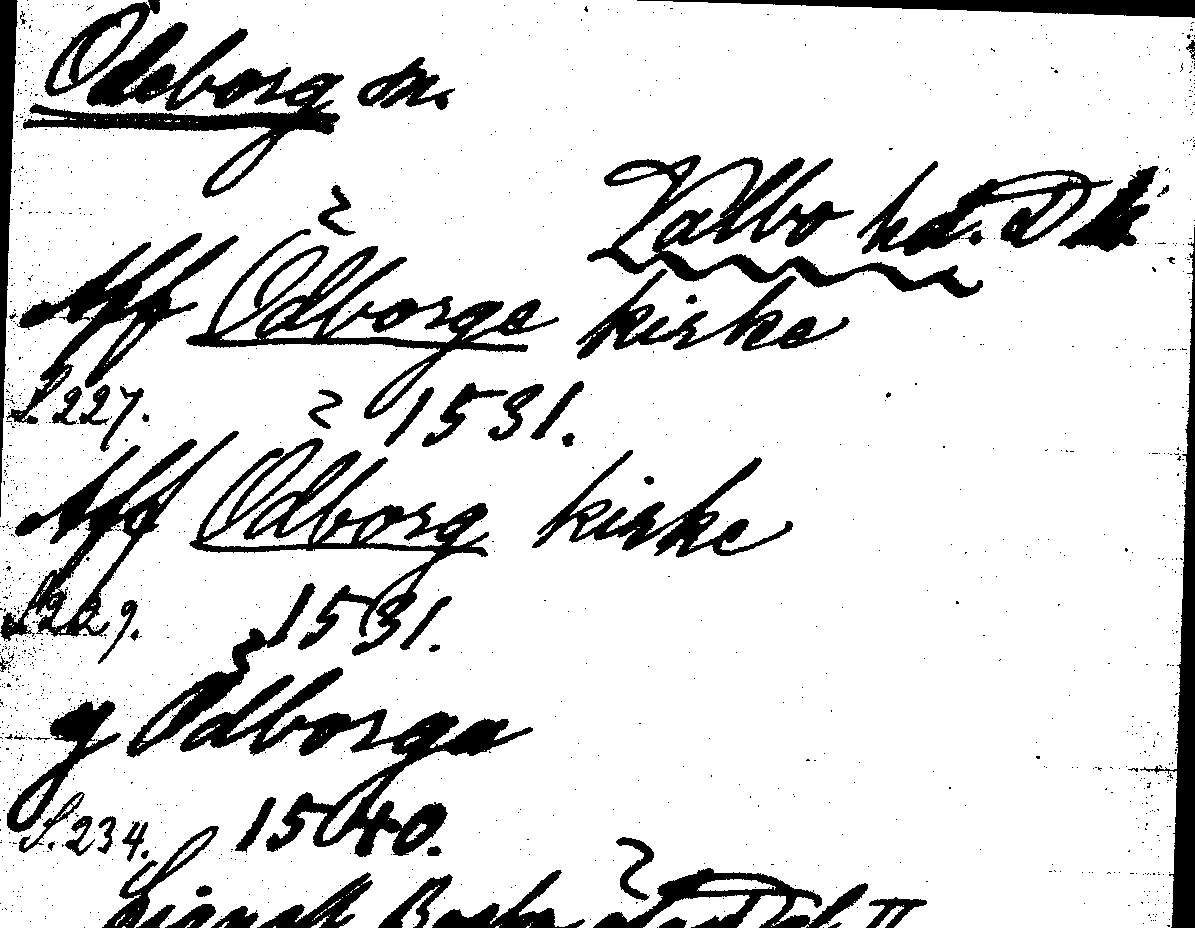 Ödeborg sn.
Valbo hd. Dl
Aff Ødborge kirke
S. 227. 1531.
Aff Ødborg kirke
S. 229. 1531.
y Ødborga
S. 234. 1540.
II